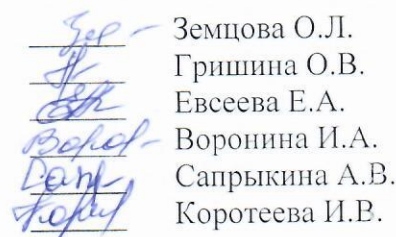 Земцова О.Л.
Гришина О.В.
Евсеева Е.А.
Воронина И.А.
Сапрыкина А.В.
Коротеева И.В.